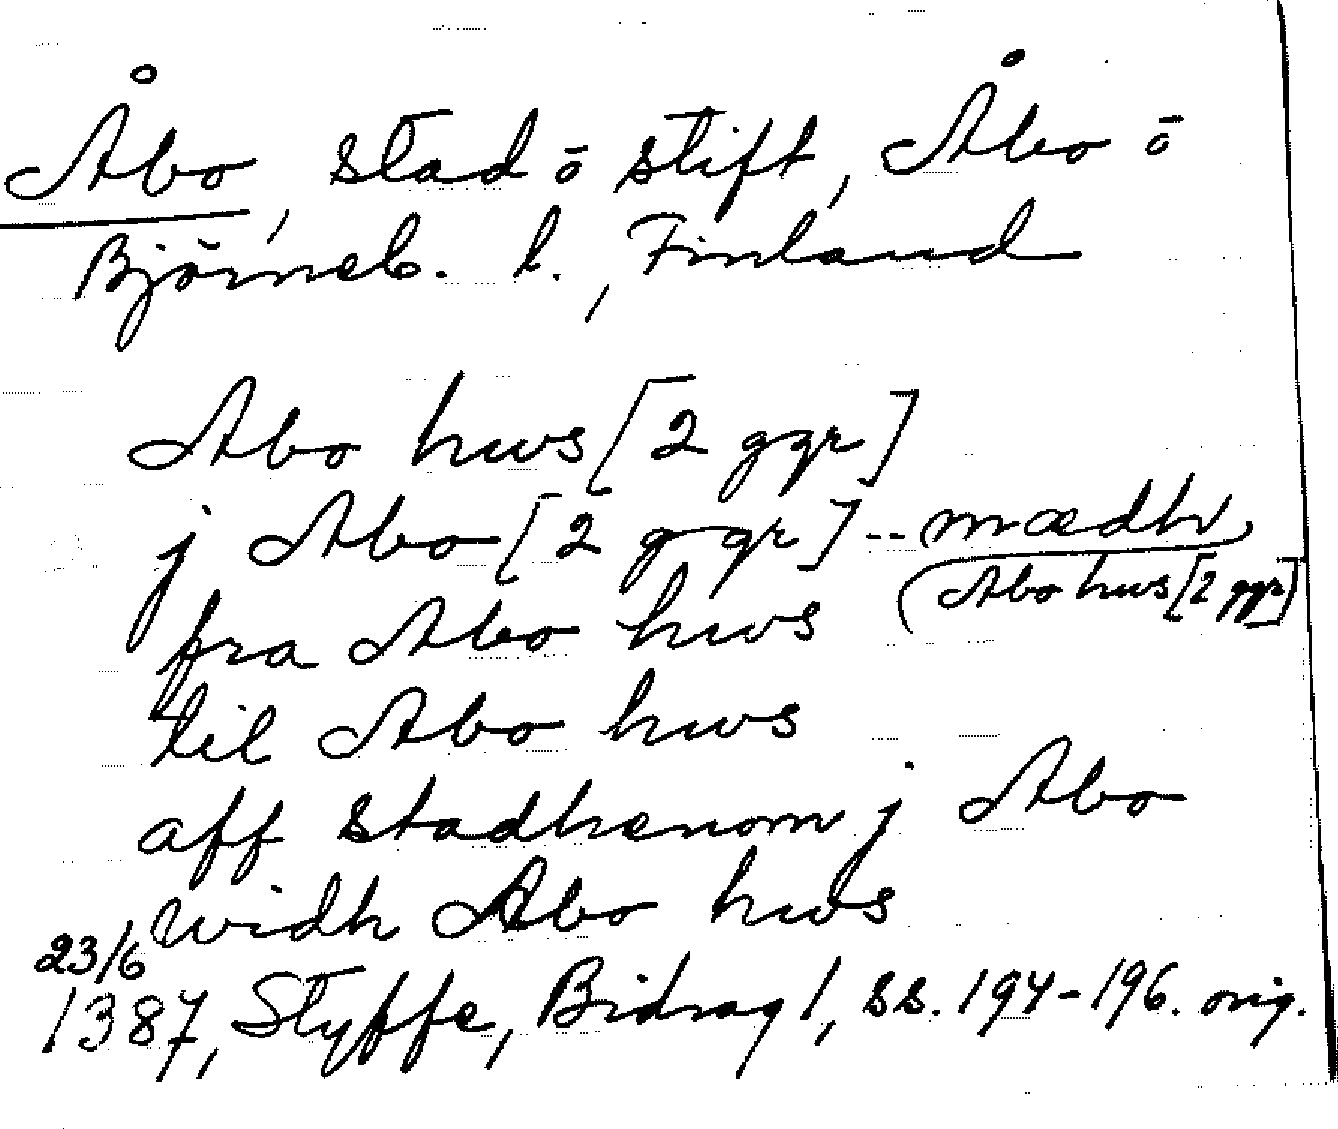 Åbo, stad ō stift, Åbo ō
Björneb. l., Finland
Abo hws [2 ggr]
j Abo [2 ggr] -- mædh
Abo hws [2 ggr]
fra Abo hws
til Abo hws
aff stadhenom j Abo
widh Abo hws
23/6
1387, Styffe, Bidrag 1, ss. 194-196. orig.